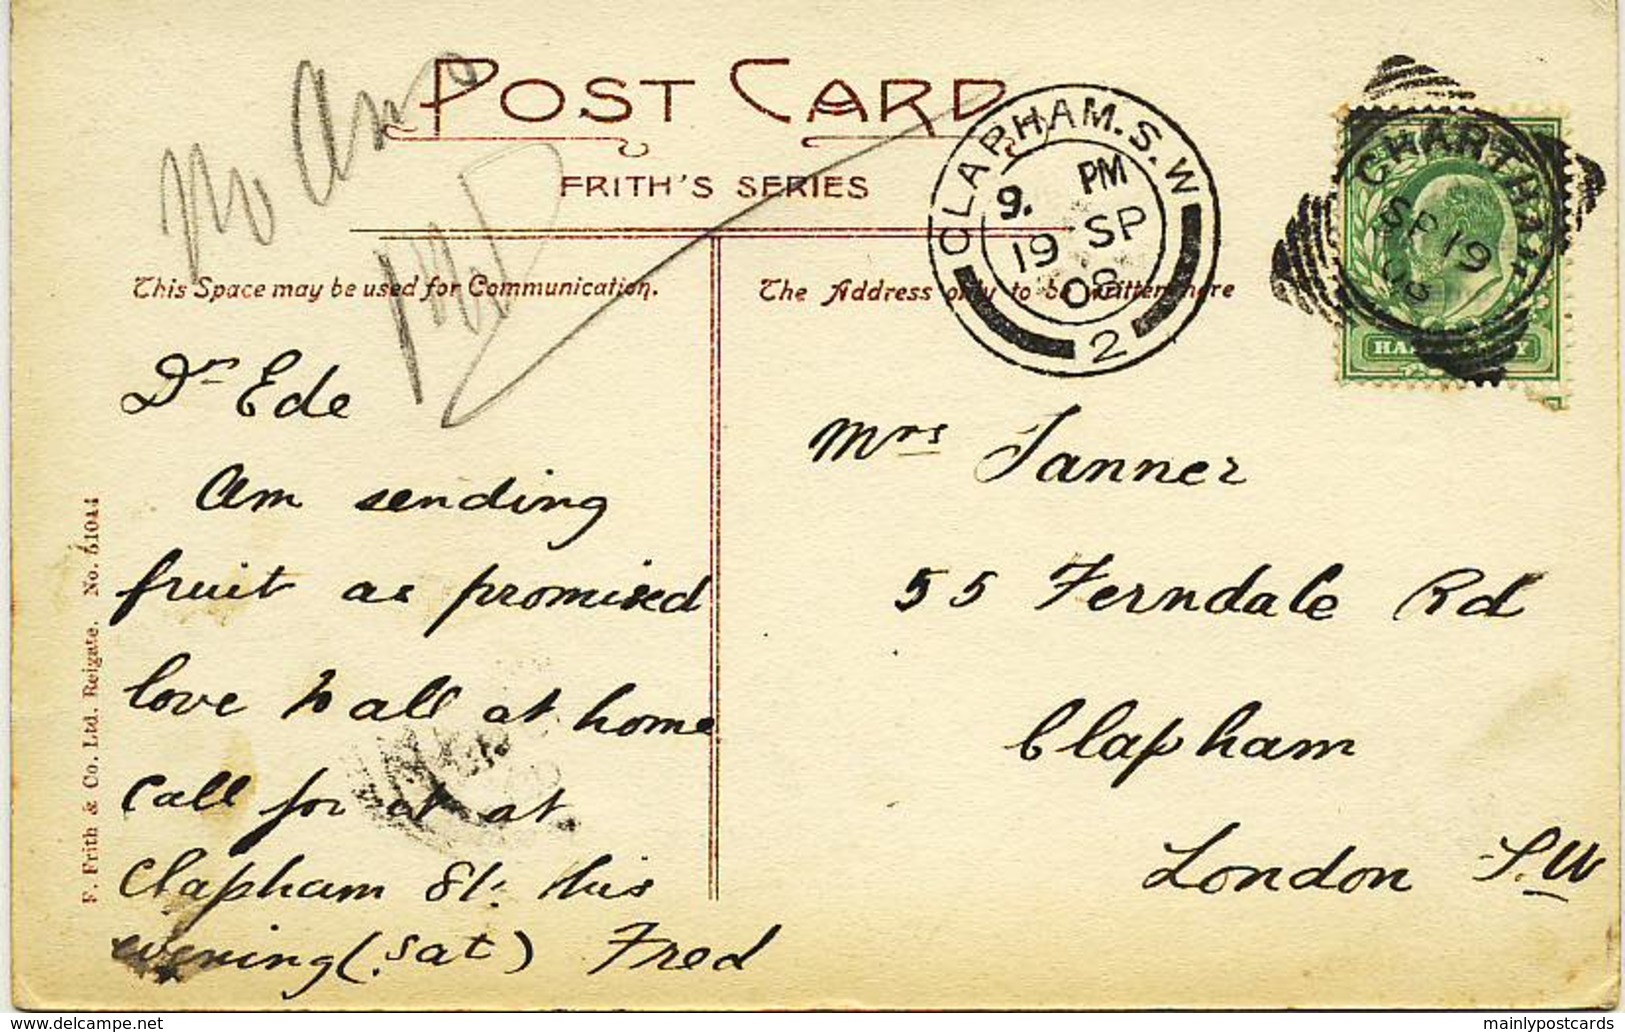 POST CARD
FRITH'S SERIES
This Space may be used for Communication.
The Address only to be written here
CLAPHAM.S.W
9. PM
19 SP
08
2
CHARTHAM
SP 19
08
HALFPENNY
No Ans
Dr Ede
Am sending
fruit as promised
love to all at home
Call for it at
Clapham St: this
evening (Sat) Fred
Mrs Tanner
55 Ferndale Rd
Clapham
London S.W
F. Frith & Co. Ltd. Reigate. No. 51044
mainlypostcards